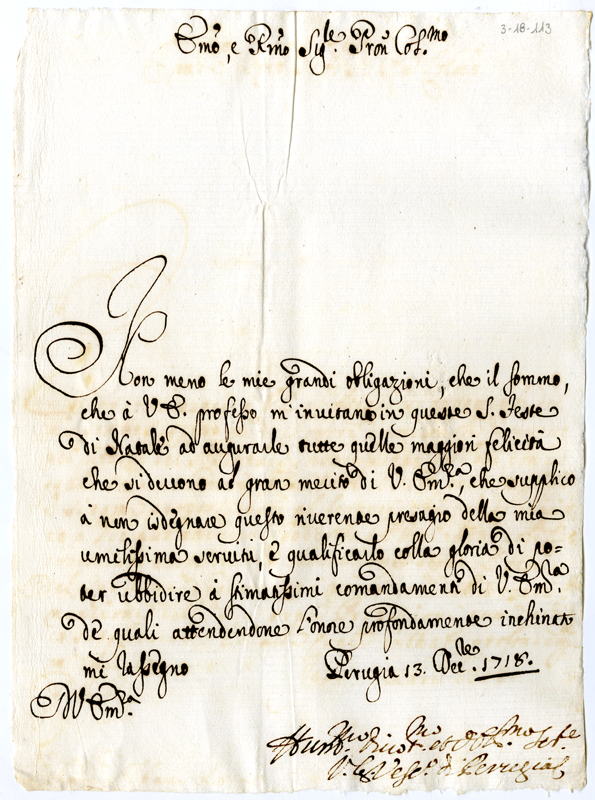 3-18-113
Emo, e Rmo Sigle. Pron Col.mo
Non meno le mie grandi obligazioni, che il sommo,
che à V. E. professo m'invitano in queste S. Feste
di Natale ad augurarle tutte quelle maggiori felicità
che si devono al gran merito di V. Em.a, che supplico
a non isdegnare questo riverente presagio della mia
umilissima servitù, e qualificarlo colla gloria di po=
ter ubbidire à stimatissimi comandamenti di V. Em.a
de quali attendendone l'onore profondamente inchinato
mi rassegno Perugia 13. Dec.le 1718.
D V Em.a
Hum.mo Divot.mo et Obl.mo Set.e
V. Vesc.o di Perugia